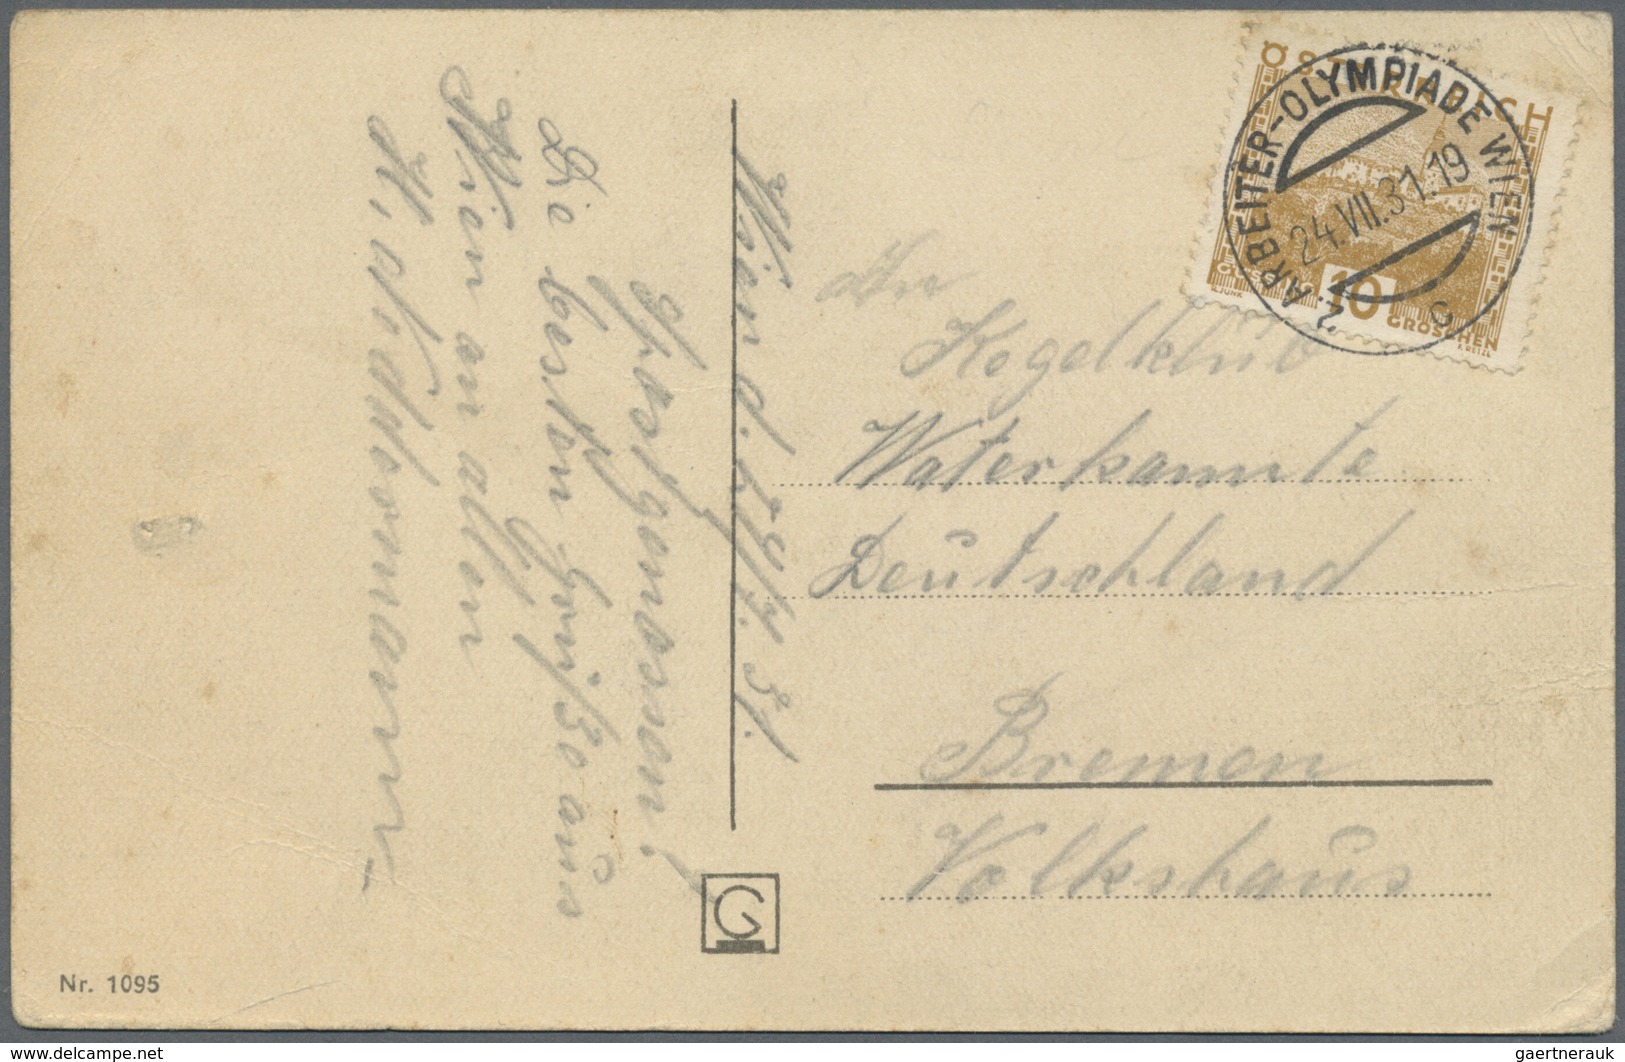 Wien d. 24/7. 31.
Sportgenossen!
Die besten Grüße aus
Wien an allen
An
Kegelklub
Waterkannte
Deutschland
Bremen
Volkshaus
ÖSTERREICH
GÜSSING
10
GROSCHEN
2. ARBEITER-OLYMPIADE WIEN
24.VII.31.19
C
G
Nr. 1095
www.delcampe.net
gaertnerauk